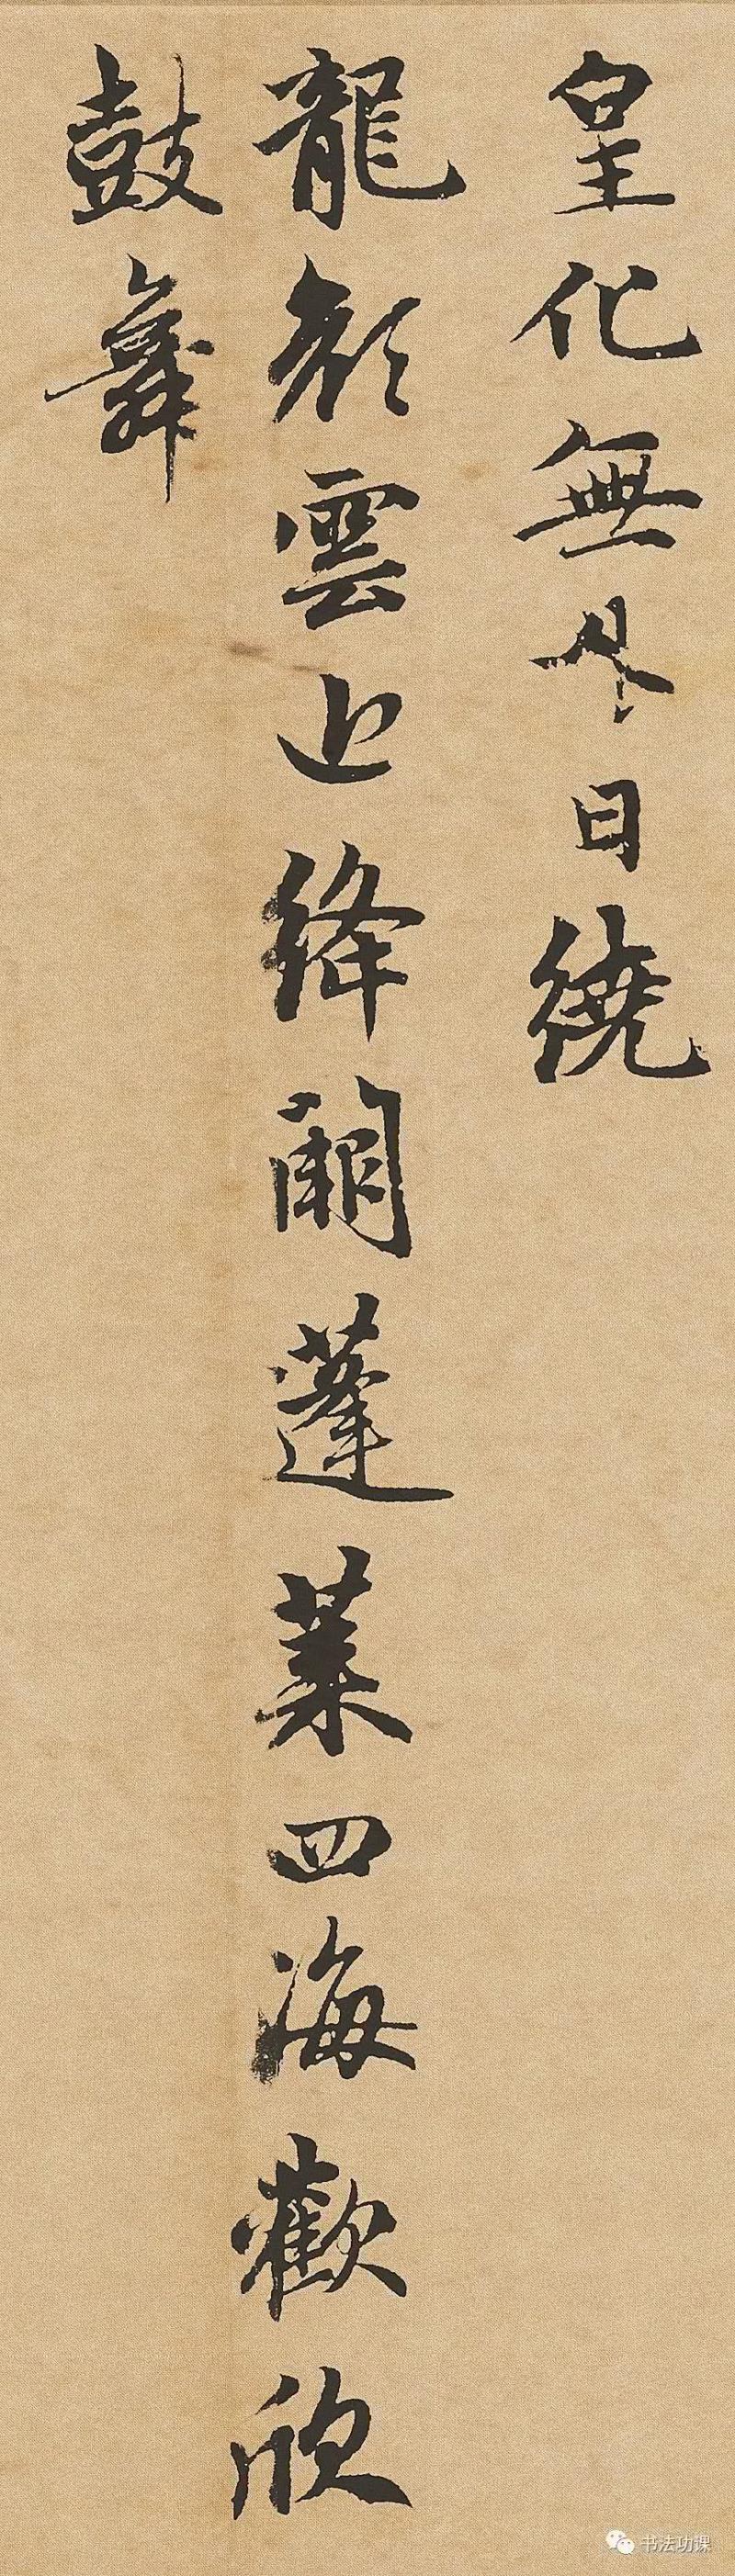 皇化無界日繞
龍顏雲上絳闕蓬萊四海歡欣
鼓舞
书法功课